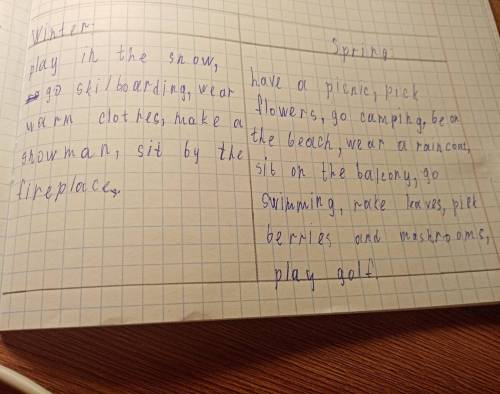 Winter.
play in the snow,
go ski/boarding, wear
warm clothes, make a
snowman, sit by the
fireplace.
Spring
have a picnic, pick
flowers, go camping, be on
the beach, wear a raincoat,
sit on the balcony, go
swimming, rake leaves, pick
berries and mashrooms,
play golf